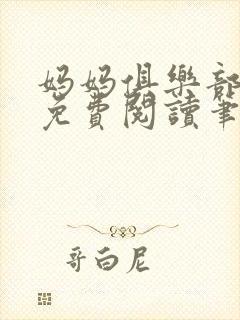 妈妈俱樂部
免費閱讀筆
哥白尼